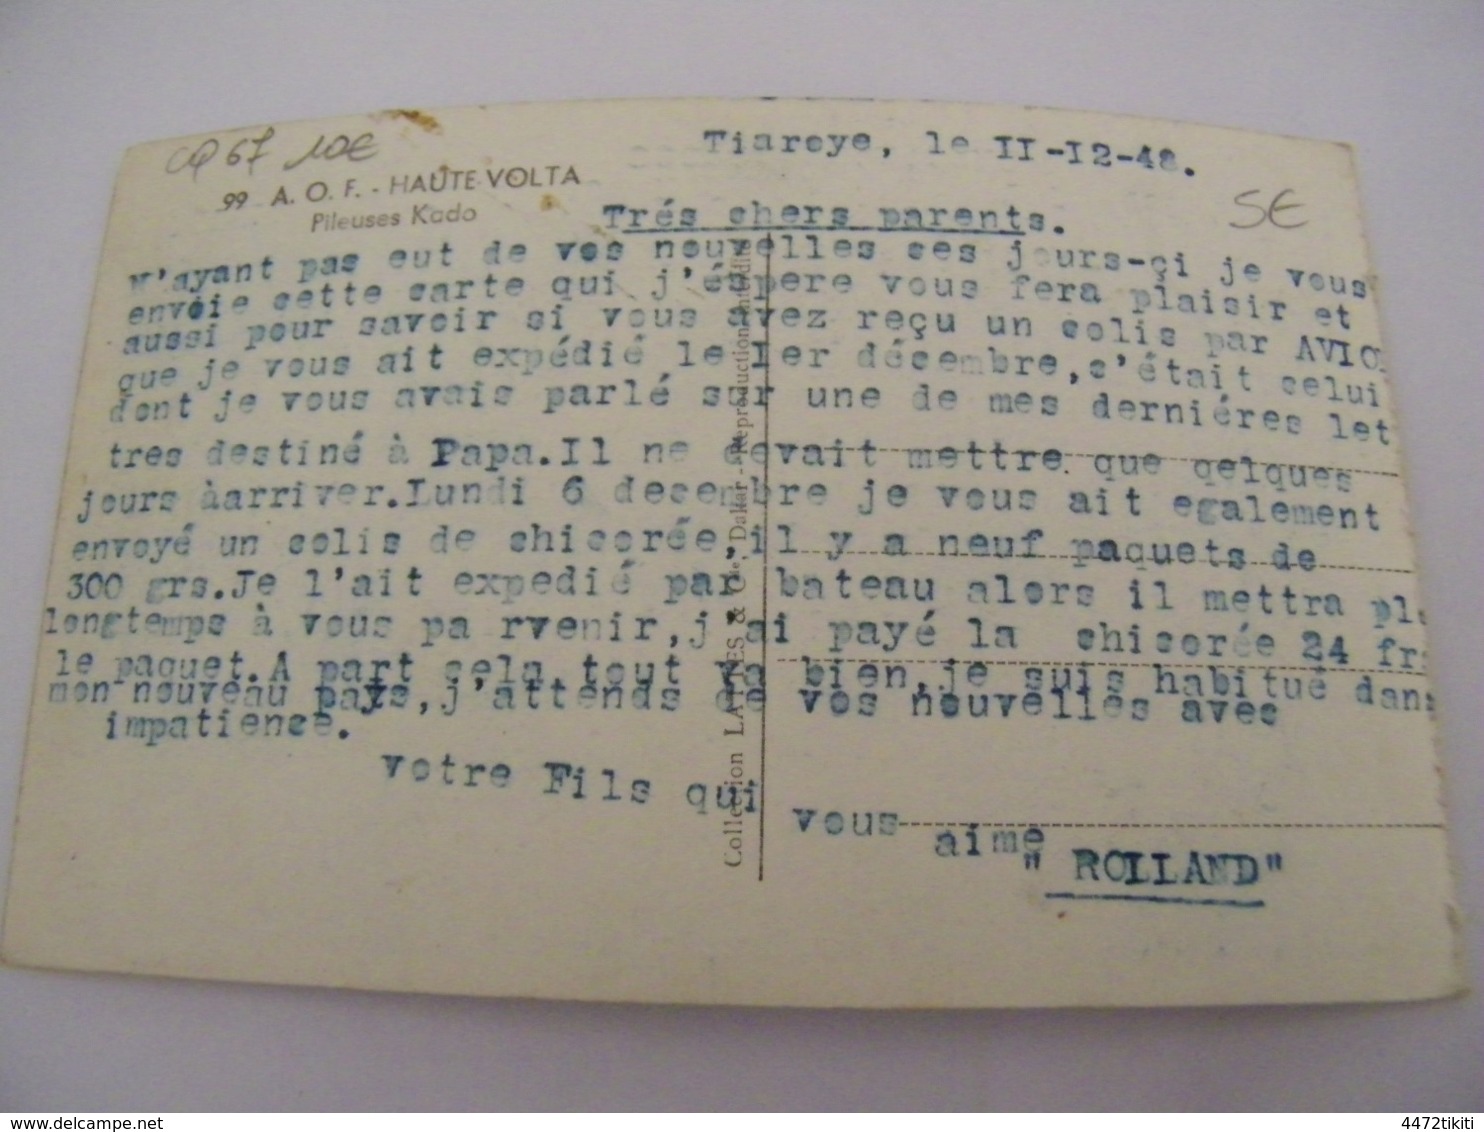 CQ 67 10€
Tiaroye, le II-I2-48.
99 A. O. F. - HAUTE-VOLTA
Pileuses Kado
5€
Trés chers parents.
N'ayant pas eut de vos nouvelles ces jours-çi je vous
envoie cette carte qui j'éspere vous fera plaisir et
aussi pour savoir si vous avez reçu un colis par AVIO
que je vous ait expédié le Ier décembre,c'était celui
dont je vous avais parlé sur une de mes derniéres let
tres destiné à Papa.Il ne devait mettre que qelques
jours àarriver.Lundi 6 decembre je vous ait egalement
envoyé un colis de chicorée,il y a neuf paquets de
300 grs.Je l'ait expedié par bateau alors il mettra plu
longtemps à vous pa rvenir,j'ai payé la chicorée 24 frs
le paquet.A part cela tout va bien,je suis habitué dans
mon nouveau pays,j'attends de vos nouvelles avec
impatience.
votre Fils qui
vous
aime
" ROLLAND"
Collection LATAES & Cie, Dakar - Reproduction interdite
delcampe.net
4472tikiti